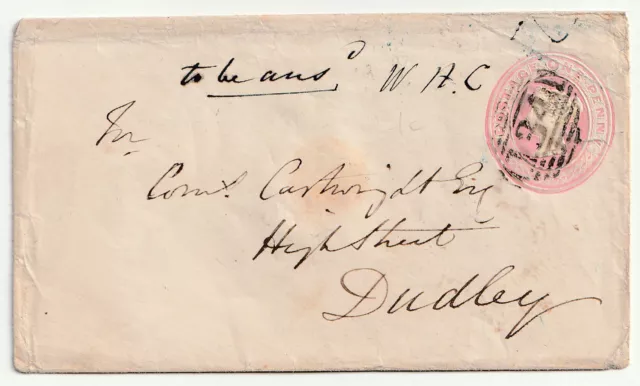 to be ans^d W. H. C
POSTAGE ONE PENNY
Mr
Corns. Cartwright Esq
High Street
Dudley